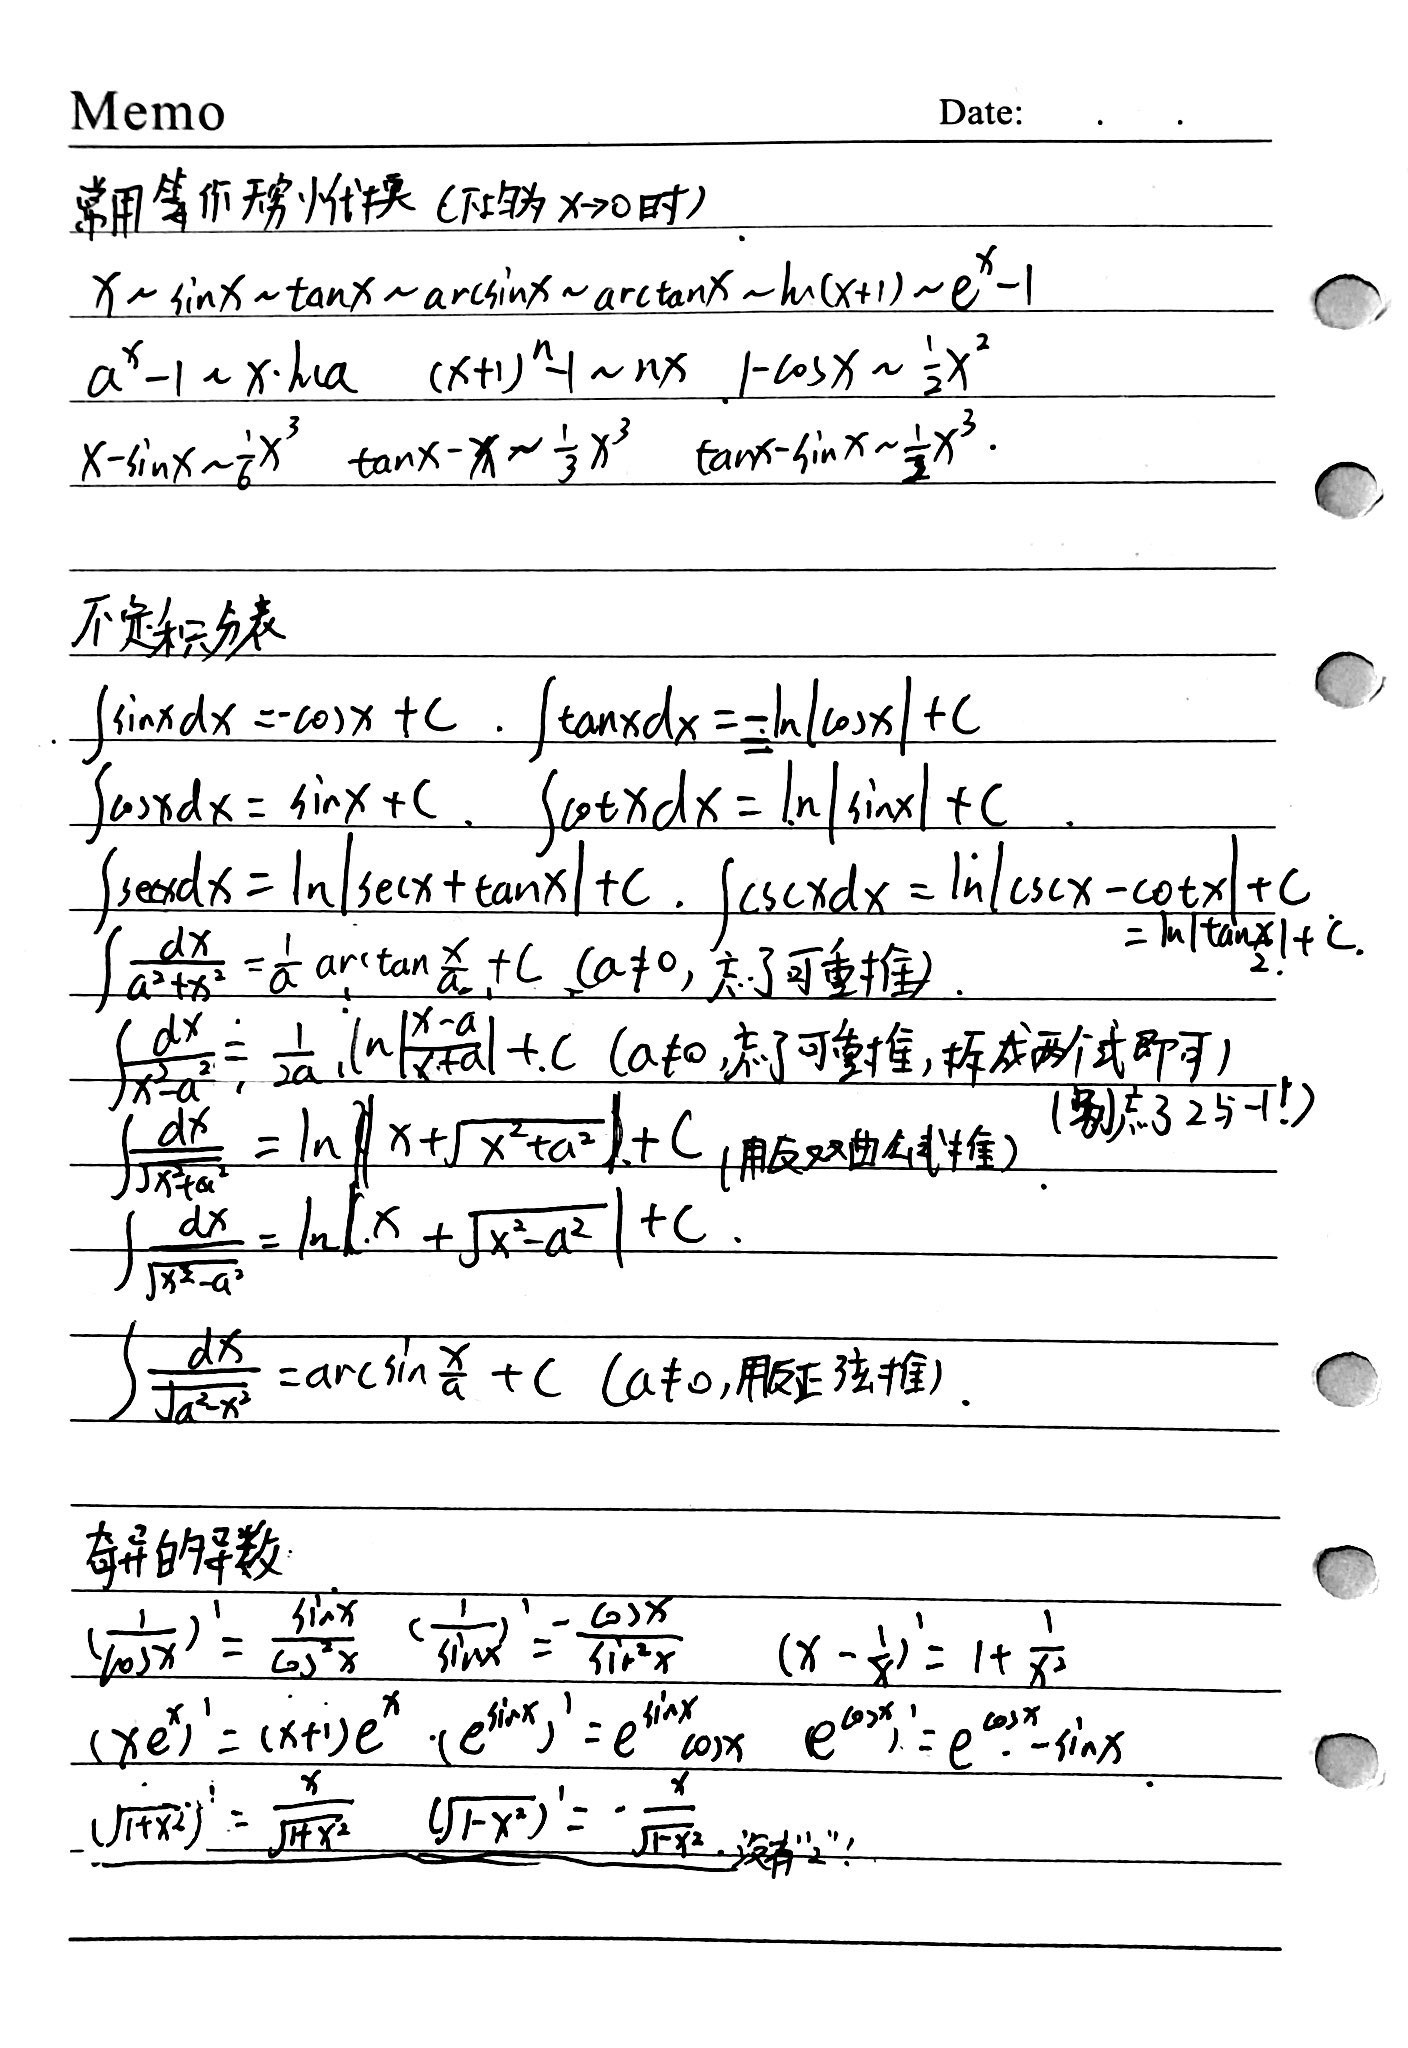 Memo Date: . .
常用等价无穷小代换（下均为 x→0 时）
x ~ sinx ~ tanx ~ arcsinx ~ arctanx ~ ln(x+1) ~ e^x-1
a^x-1 ~ x·lna (x+1)^n-1 ~ nx 1-cosx ~ 1/2 x^2
x-sinx ~ 1/6 x^3 tanx-x ~ 1/3 x^3 tanx-sinx ~ 1/2 x^3.
不定积分表
∫sinxdx = -cosx + C. ∫tanxdx = -ln|cosx| + C
∫cosxdx = sinx + C. ∫cotxdx = ln|sinx| + C.
∫secxdx = ln|secx+tanx| + C. ∫cscxdx = ln|cscx-cotx| + C
= ln|tan x/2| + C.
∫dx/(a^2+x^2) = 1/a arctan x/a + C (a≠0, 忘了可重推).
∫dx/(x^2-a^2) = 1/2a ln|(x-a)/(x+a)| + C (a≠0, 忘了可重推, 拆成两个式即可)
(别忘了2与-1!)
∫dx/√(x^2+a^2) = ln|x+√(x^2+a^2)| + C (用反双曲公式推).
∫dx/√(x^2-a^2) = ln|x+√(x^2-a^2)| + C.
∫dx/√(a^2-x^2) = arcsin x/a + C (a≠0, 用反正弦推).
奇异的导数
(1/cosx)' = sinx/cos^2x (1/sinx)' = -cosx/sin^2x (x-1/x)' = 1+1/x^2
(xe^x)' = (x+1)e^x (e^sinx)' = e^sinx cosx e^cosx)' = e^cosx·-sinx.
(√(1+x^2))' = x/√(1+x^2) (√(1-x^2))' = -x/√(1-x^2). 没有"2"!